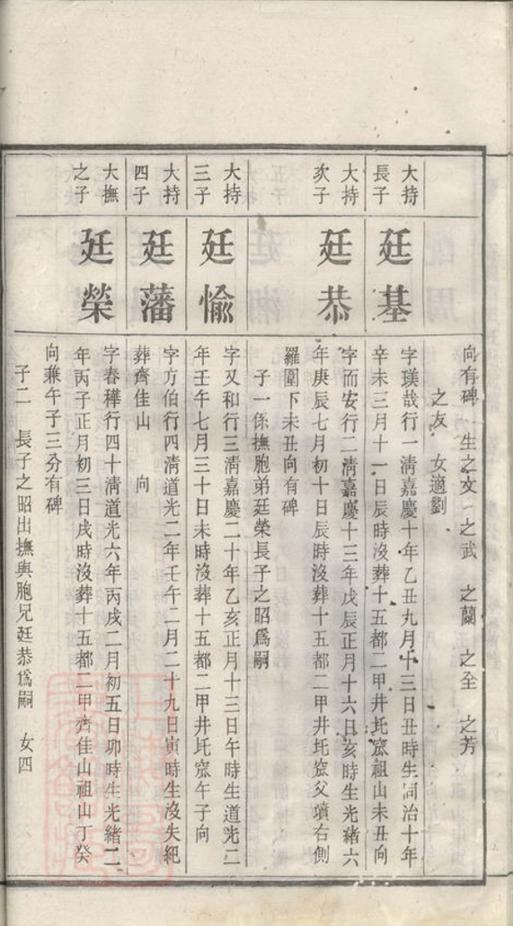 向有碑 生之文 之武 之蘭 之全 之芳
之友 女適劉
大持
長子
廷基
字瑛哉行一清嘉慶十年乙丑九月十三日丑時生同治十年
辛未三月十一日辰時没葬十五都二甲井圫窰祖山未丑向
大持
次子
廷恭
字而安行二清嘉慶十三年戊辰正月十六日亥時生光緒六
年庚辰七月初十日辰時没葬十五都二甲井圫窰父墳右側
羅圍下未丑向有碑
子一係撫胞弟廷榮長子之昭爲嗣
大持
三子
廷愉
字又和行三清嘉慶二十年乙亥正月十三日午時生道光二
年壬午七月三十日未時没葬十五都二甲井圫窰午子向
大持
四子
廷藩
字方伯行四清道光二年壬午二月二十九日寅時生没失紀
葬齊佳山 向
大撫
之子
廷榮
字春穉行四十清道光六年丙戌二月初五日卯時生光緒二
年丙子正月初三日戌時没葬十五都二甲齊佳山祖山丁癸
向兼午子三分有碑
子二 長子之昭出撫與胞兄廷恭爲嗣 女四